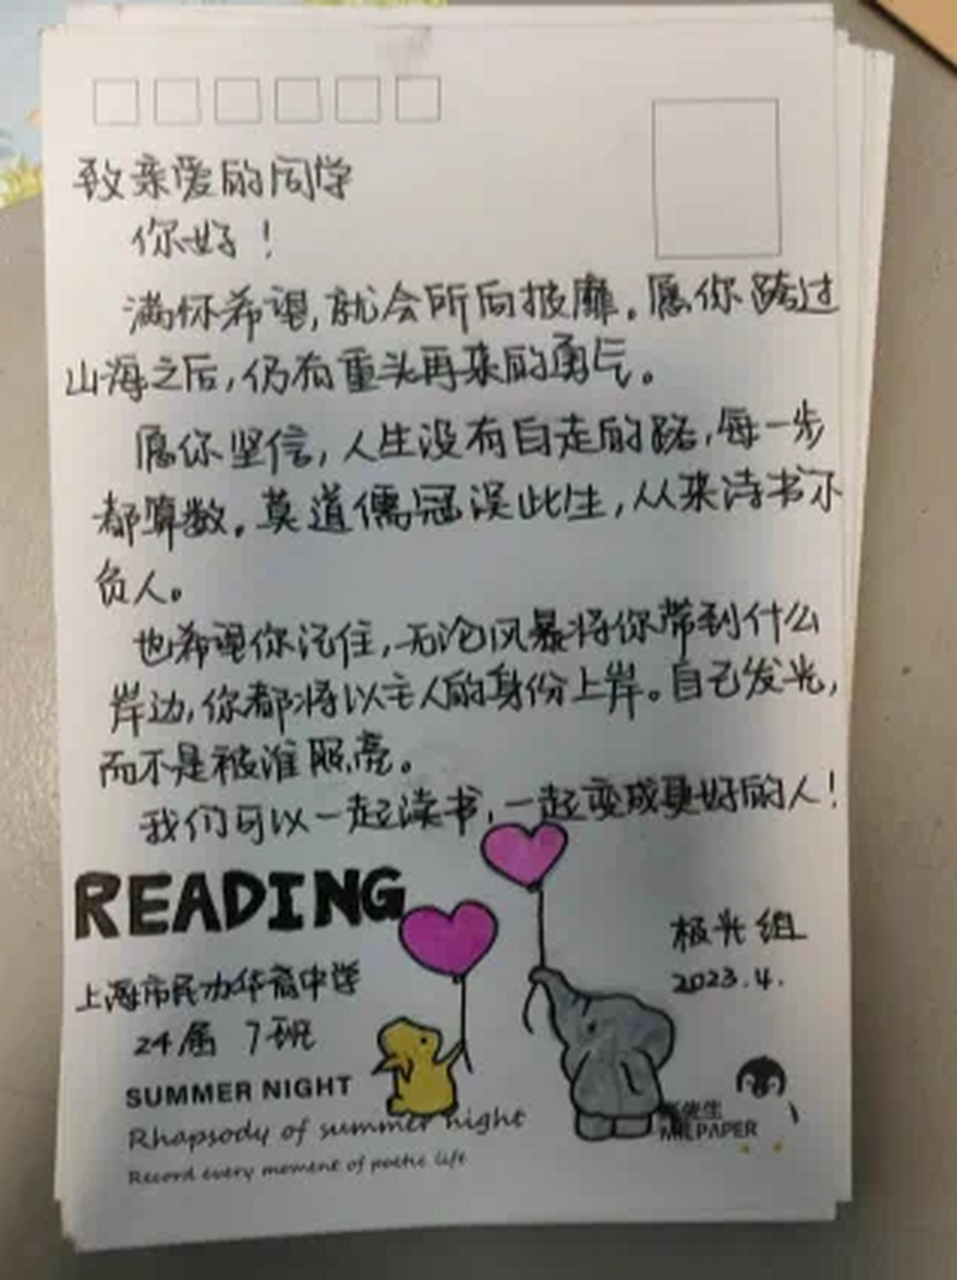 致亲爱的同学
你好！
满怀希望,就会所向披靡。愿你跨过
山海之后,仍有重头再来的勇气。
愿你坚信,人生没有白走的路,每一步
都算数。莫道儒冠误此生,从来诗书不
负人。
也希望你记住,无论风暴将你带到什么
岸边,你都将以主人的身份上岸。自己发光,
而不是被谁照亮。
我们可以一起读书,一起变成更好的人！
READING
极光组
2023.4.
上海市民办华育中学
24届 7班
SUMMER NIGHT
Rhapsody of summer night
Record every moment of poetic life
先生
PAPER